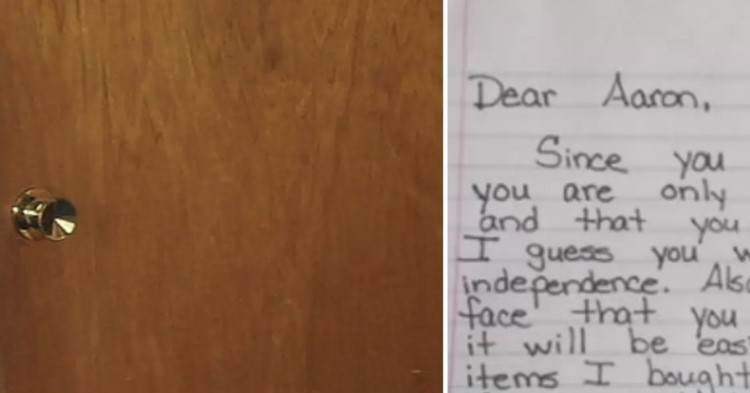 Dear Aaron,
Since you
you are only
and that you
I guess you w
independence. Also
face that you
it will be eas
items I bought